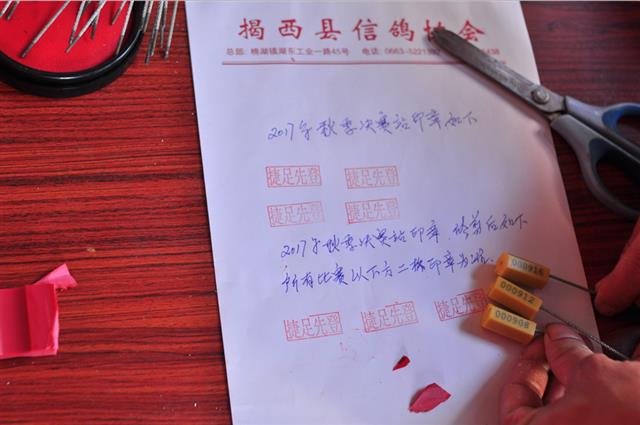 揭西县信鸽协会
总部: 棉湖镇湖东工业一路45号 电话: 0663-5221
438
2017年秋季决赛站印章如下
捷足先登 捷足先登
捷足先登 捷足先登
2017年秋季决赛站印章,修剪后如下
所有比赛以下方二枚印章为准.
捷足先登 捷足先登 捷足先登
000916
000912
000908